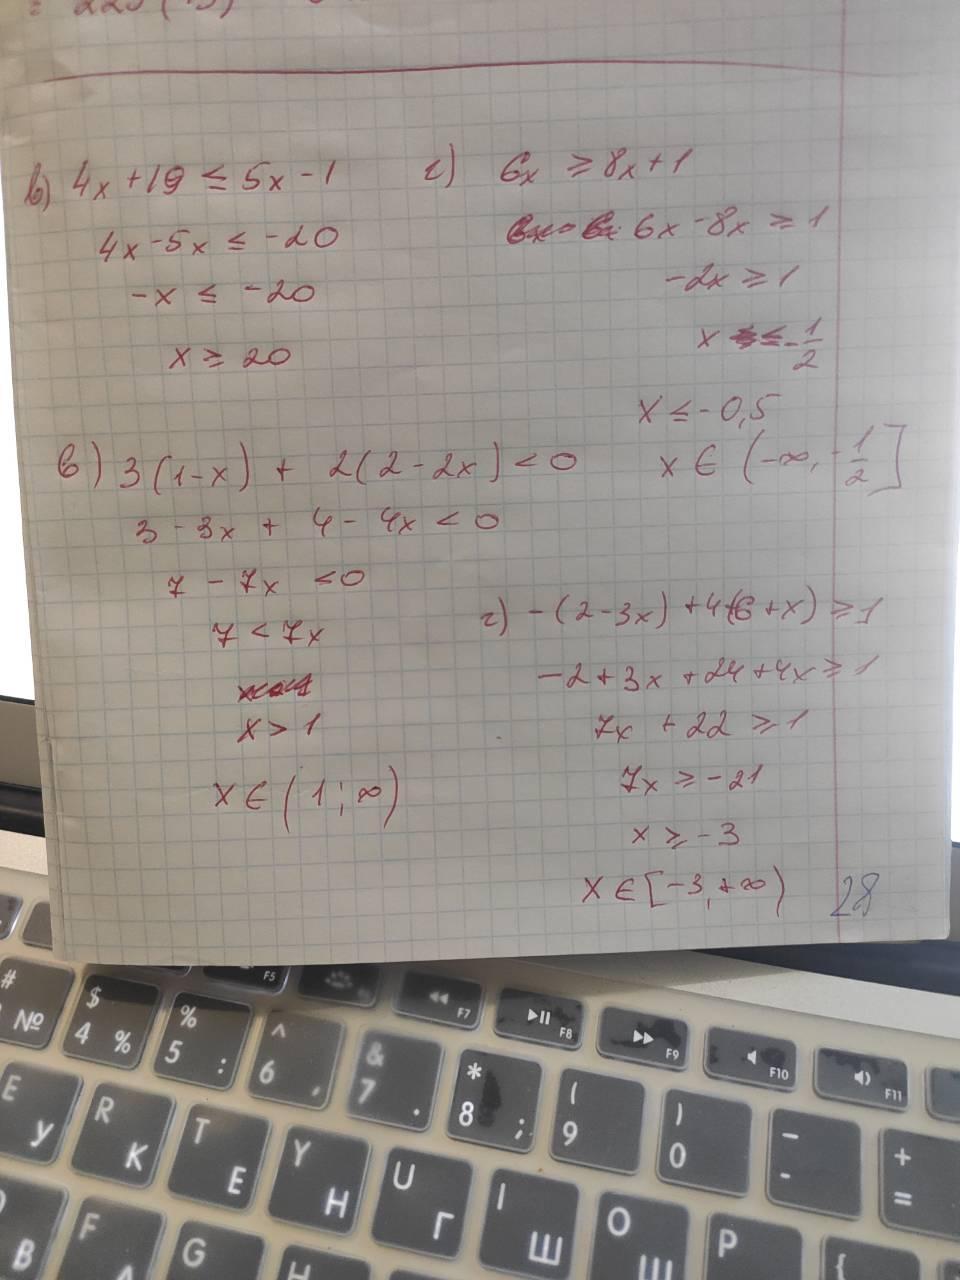 в) 4x + 19 ≤ 5x - 1
4x - 5x ≤ -20
-x ≤ -20
x ≥ 20
г) 6x ≥ 8x + 1
6x - 8x ≥ 1
-2x ≥ 1
x ≤ -1/2
x ≤ -0,5
x ∈ (-∞, -1/2]
в) 3(1-x) + 2(2-2x) < 0
3 - 3x + 4 - 4x < 0
7 - 7x < 0
7 < 7x
x > 1
x ∈ (1; ∞)
г) -(2-3x) + 4(6+x) ≥ 1
-2 + 3x + 24 + 4x ≥ 1
7x + 22 ≥ 1
7x ≥ -21
x ≥ -3
x ∈ [-3, +∞)
28
# №
$ 4 %
% 5 :
^ 6 ,
& 7 .
* 8 ;
( 9
) 0
- -
+ =
F5
F7
F8
F9
F10
F11
E У
R К
T Е
Y Н
U Г
I Ш
O Щ
P
В
F А
G
H
{